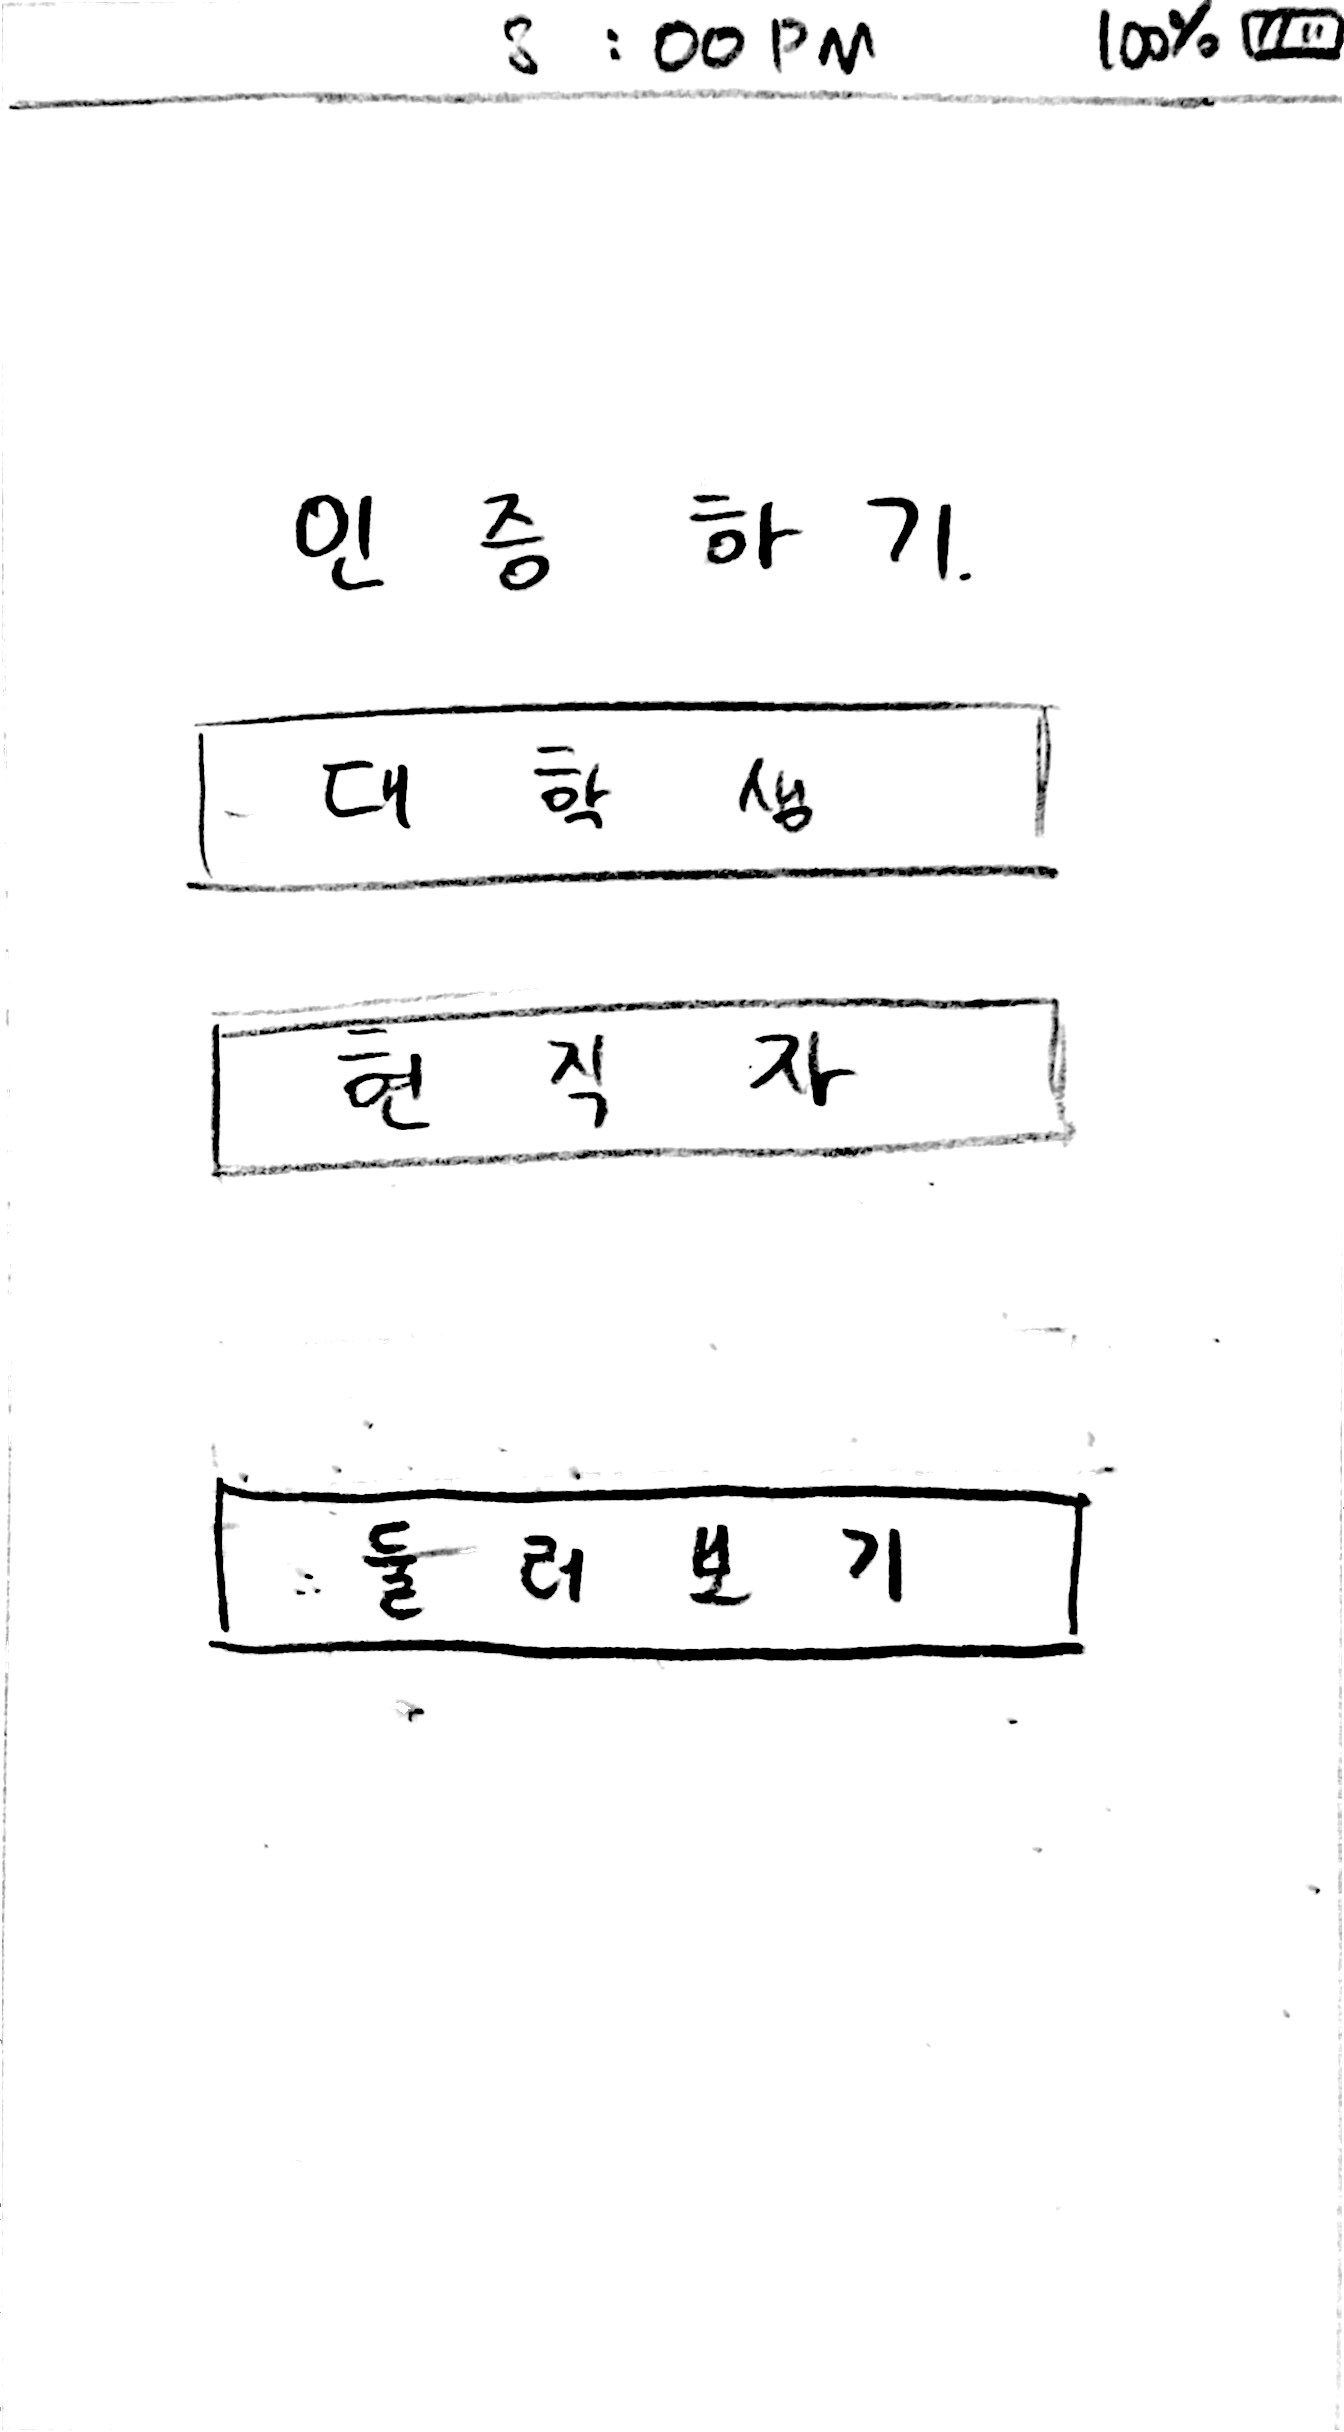 8:00 PM 100%
인증하기.
대학생
현직자
둘러보기